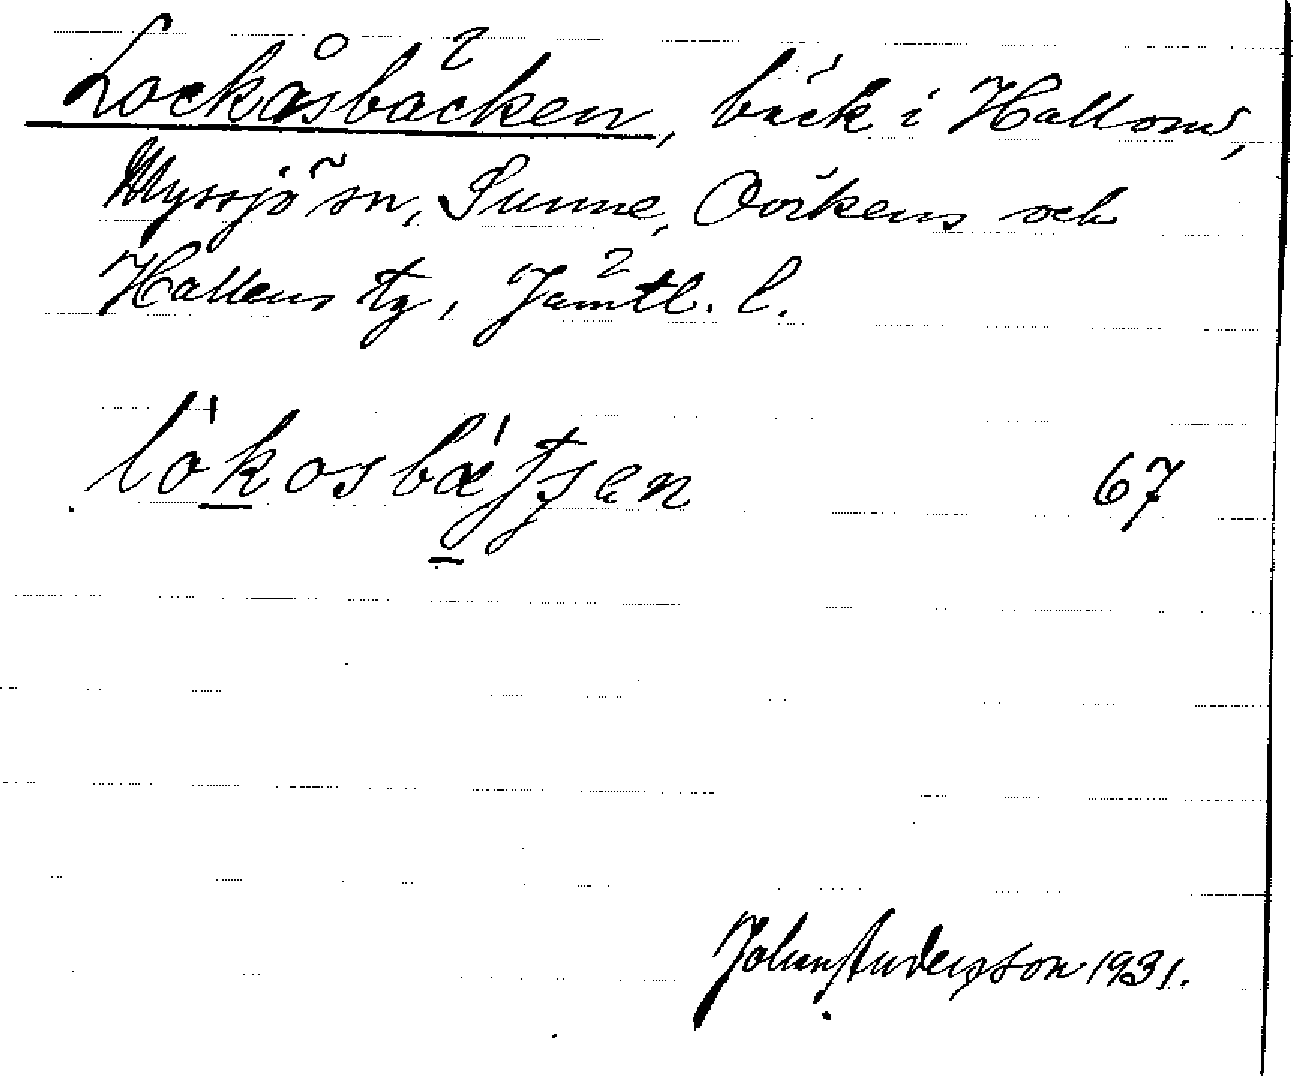 Lockåsbäcken, bäck i Hallom,
Myssjö sn, Sunne, Ovikens och
Hallens tg, Jämtl. l.
67
Johan Andersson 1931.